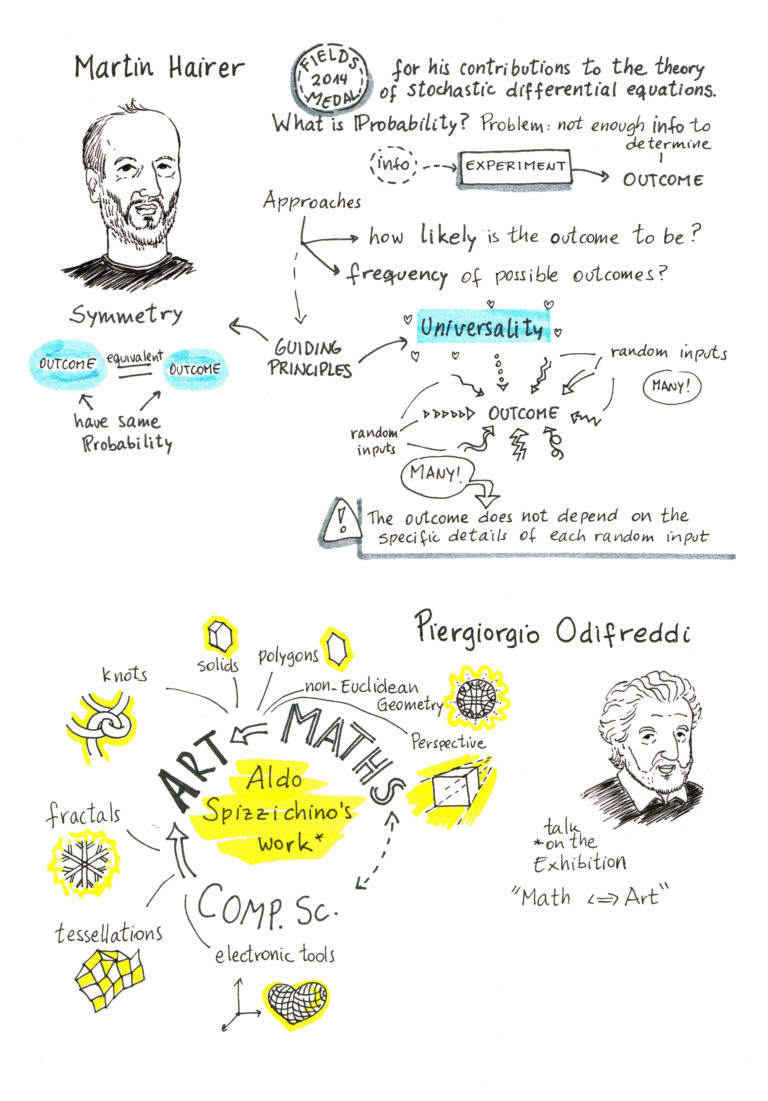 Martin Hairer
FIELDS
2014
MEDAL
for his contributions to the theory
of stochastic differential equations.
What is Probability? Problem: not enough info to
determine
info
EXPERIMENT
OUTCOME
Approaches
how likely is the outcome to be?
frequency of possible outcomes?
Symmetry
OUTCOME
equivalent
OUTCOME
have same
Probability
GUIDING
PRINCIPLES
Universality
random inputs
MANY!
OUTCOME
random
inputs
MANY!
!
The outcome does not depend on the
specific details of each random input
Piergiorgio Odifreddi
knots
solids
polygons
non-Euclidean
Geometry
Perspective
ART
MATHS
Aldo
Spizzichino's
work*
fractals
tessellations
COMP. SC.
electronic tools
talk
*on the
Exhibition
"Math <=> Art"